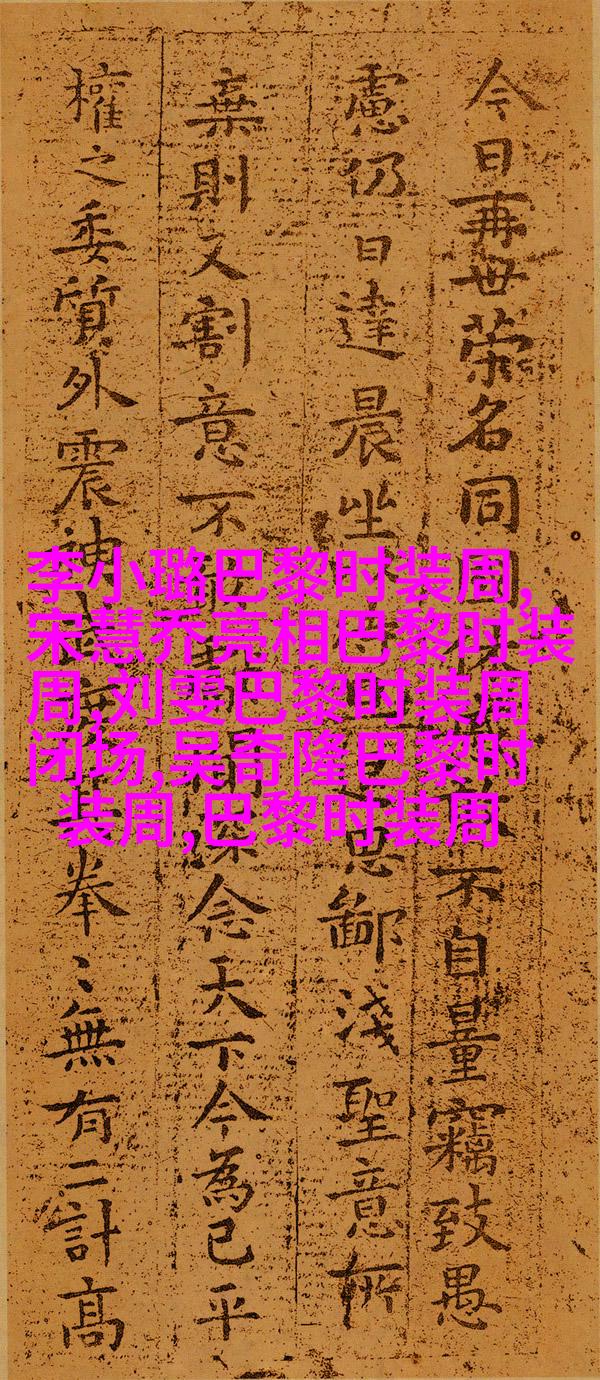 今日再世荣名同休不自量竊致愚
慮仍日達晨坐思鄙淺聖意所
棄則又割意不聞深念天下今為已平
權之委質外震神拳〻無有二計高
李小璐巴黎时装周,
宋慧乔亮相巴黎时装
周,刘雯巴黎时装周
闭场,吴奇隆巴黎时
装周,巴黎时装周